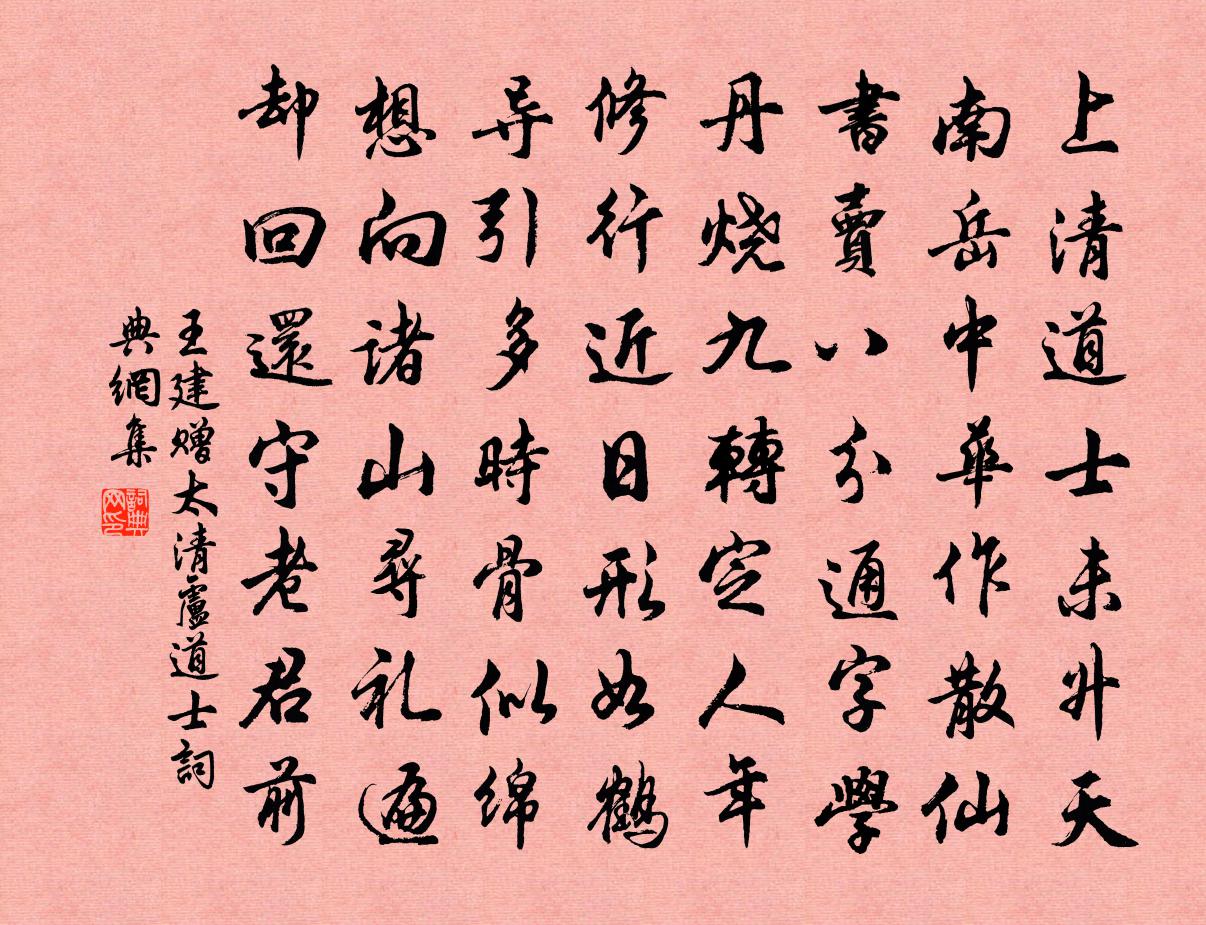 上清道士未升天
南岳中華作散仙
書賣八分通字學
丹烧九轉定人年
修行近日形如鶴
导引多時骨似绵
想向诸山尋礼遍
却回還守老君前
王建赠太清盧道士詞
典網集
詞典网印